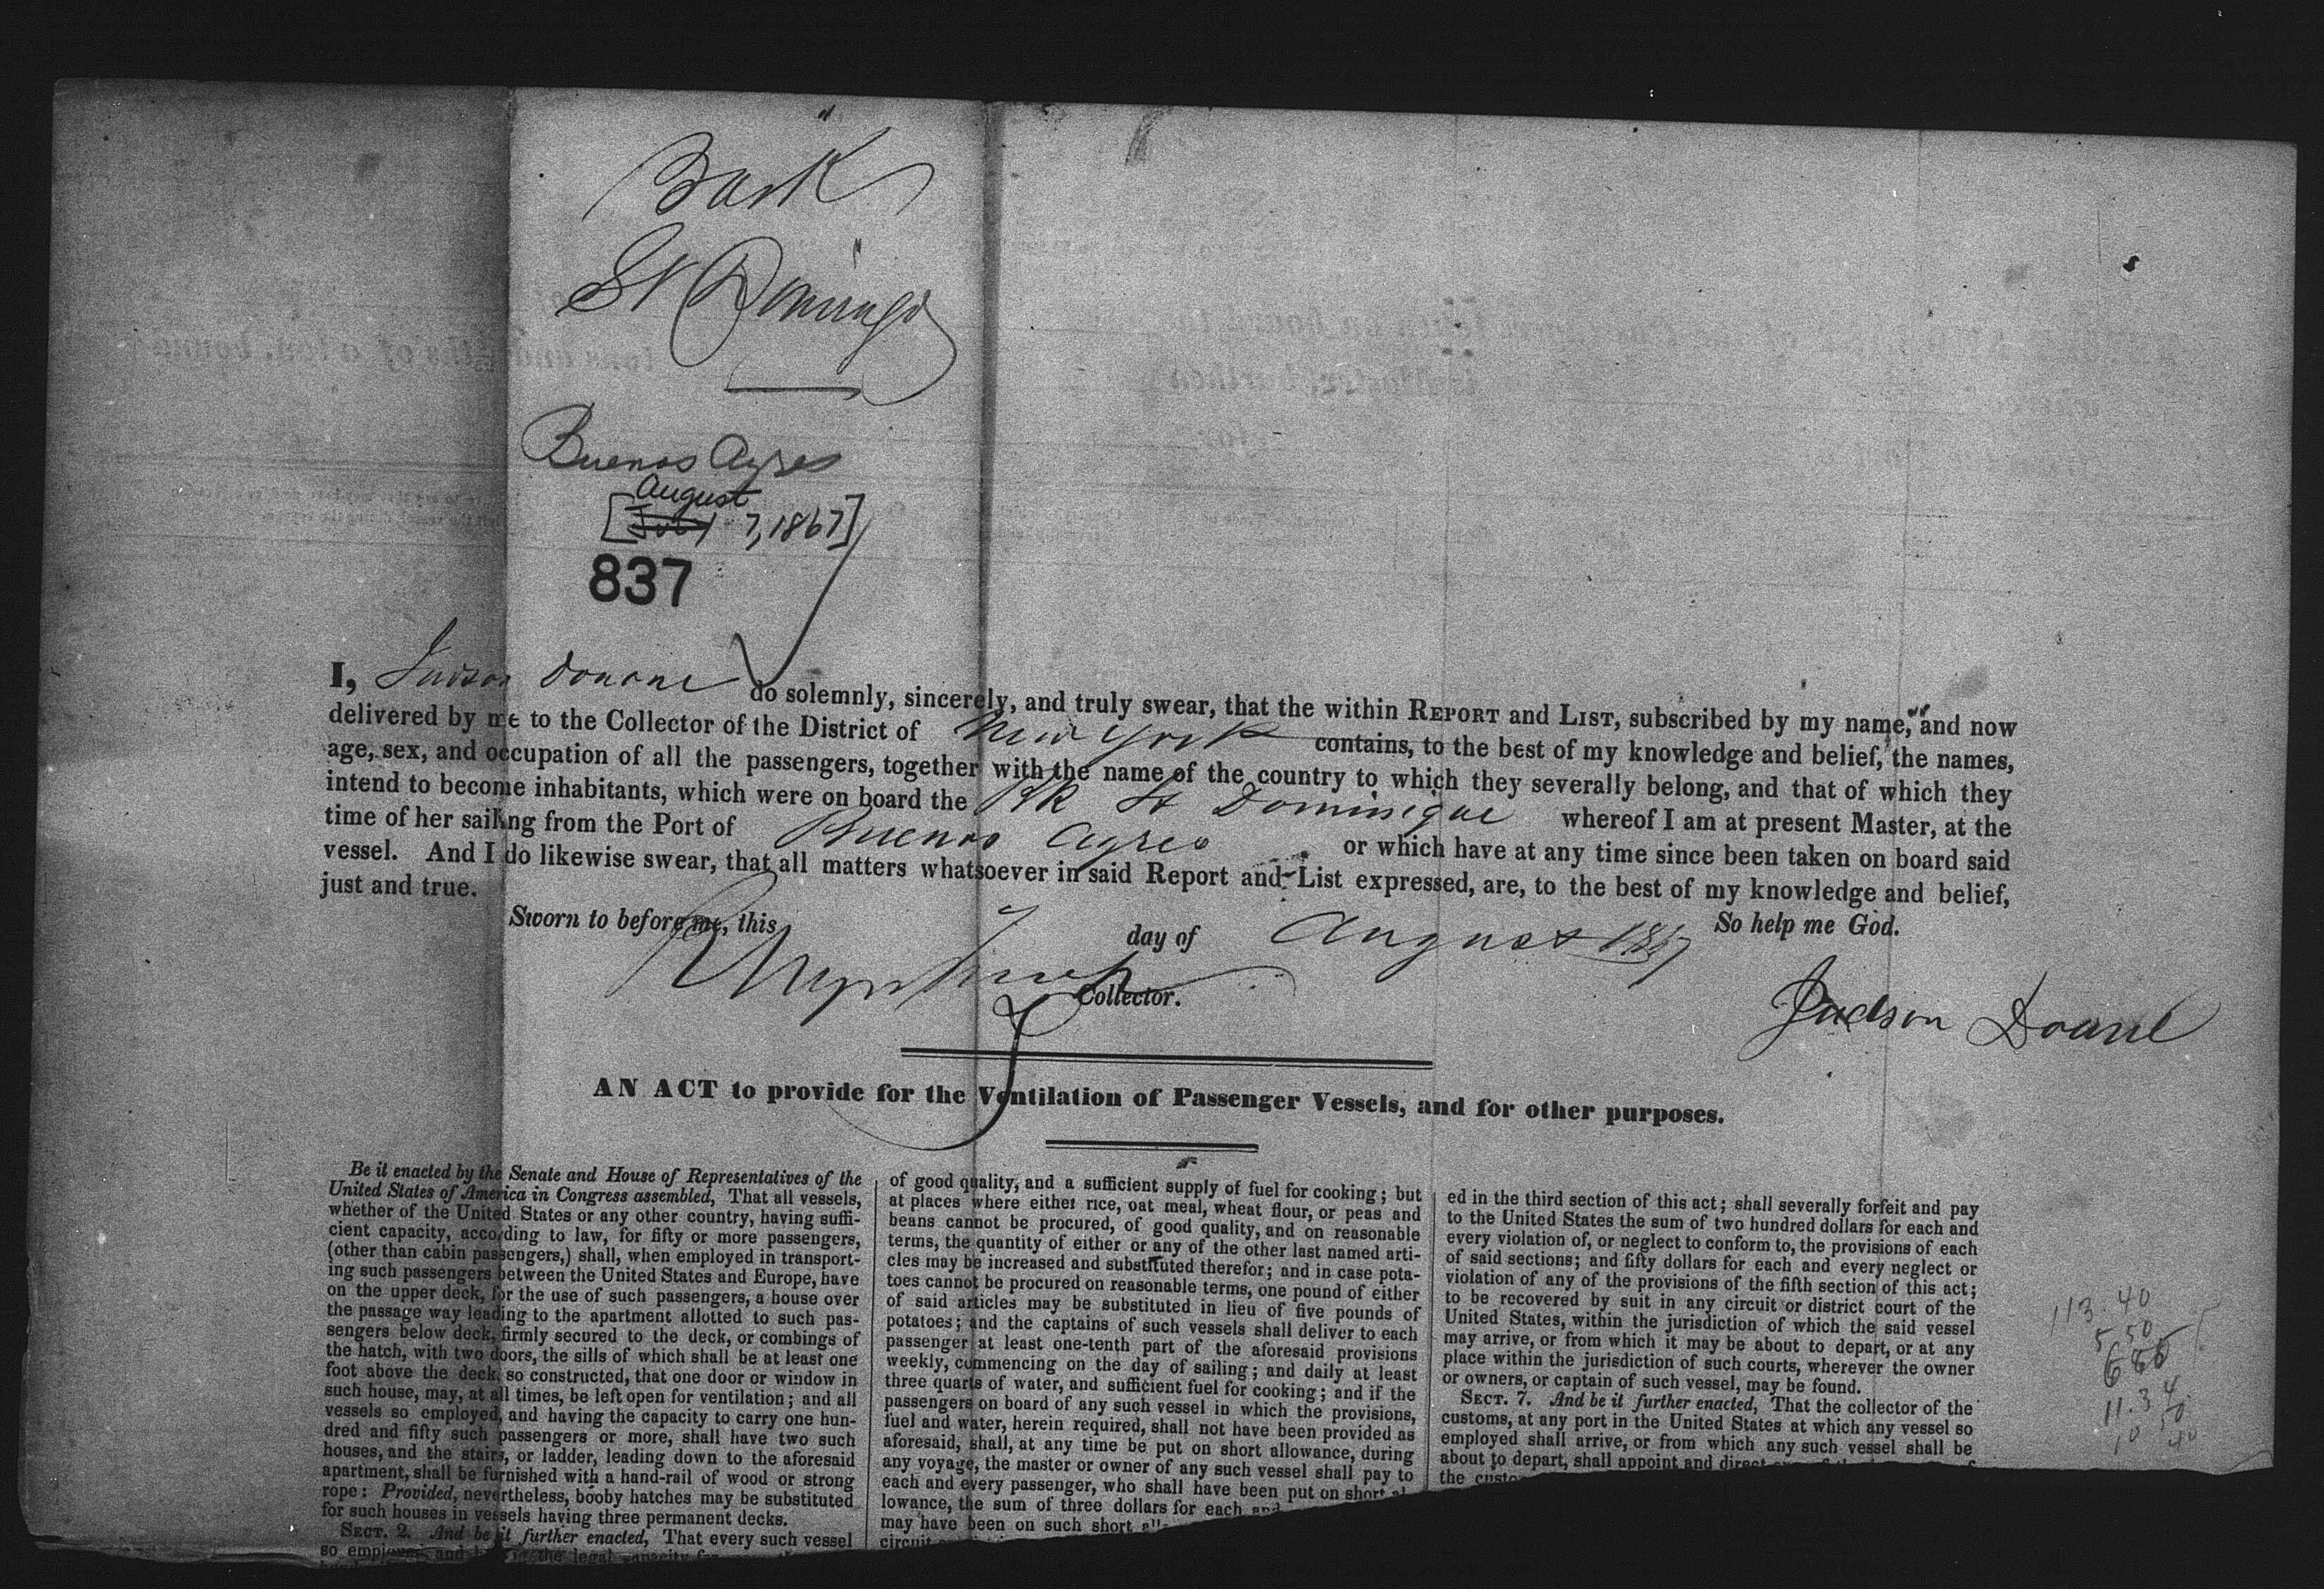 Bark
St Domingo
Buenos Ayres
August
[July 7, 1867]
837
I, Judson Donane do solemnly, sincerely, and truly swear, that the within REPORT and LIST, subscribed by my name, and now
delivered by me to the Collector of the District of New York contains, to the best of my knowledge and belief, the names,
age, sex, and occupation of all the passengers, together with the name of the country to which they severally belong, and that of which they
intend to become inhabitants, which were on board the Bk St Dominique whereof I am at present Master, at the
time of her sailing from the Port of Buenos Ayres or which have at any time since been taken on board said
vessel. And I do likewise swear, that all matters whatsoever in said Report and List expressed, are, to the best of my knowledge and belief,
just and true.
So help me God.
Sworn to before me, this 7 day of August 1867
Collector.
Judson Doane
AN ACT to provide for the Ventilation of Passenger Vessels, and for other purposes.
Be it enacted by the Senate and House of Representatives of the
United States of America in Congress assembled, That all vessels,
whether of the United States or any other country, having suffi-
cient capacity, according to law, for fifty or more passengers,
(other than cabin passengers,) shall, when employed in transport-
ing such passengers between the United States and Europe, have
on the upper deck, for the use of such passengers, a house over
the passage way leading to the apartment allotted to such pas-
sengers below deck, firmly secured to the deck, or combings of
the hatch, with two doors, the sills of which shall be at least one
foot above the deck, so constructed, that one door or window in
such house, may, at all times, be left open for ventilation; and all
vessels so employed, and having the capacity to carry one hun-
dred and fifty such passengers or more, shall have two such
houses, and the stairs, or ladder, leading down to the aforesaid
apartment, shall be furnished with a hand-rail of wood or strong
rope: Provided, nevertheless, booby hatches may be substituted
for such houses in vessels having three permanent decks.
SECT. 2. And be it further enacted, That every such vessel
so employed and the legal capacity for
of good quality, and a sufficient supply of fuel for cooking; but
at places where either rice, oat meal, wheat flour, or peas and
beans cannot be procured, of good quality, and on reasonable
terms, the quantity of either or any of the other last named arti-
cles may be increased and substituted therefor; and in case pota-
toes cannot be procured on reasonable terms, one pound of either
of said articles may be substituted in lieu of five pounds of
potatoes; and the captains of such vessels shall deliver to each
passenger at least one-tenth part of the aforesaid provisions
weekly, commencing on the day of sailing; and daily at least
three quarts of water, and sufficient fuel for cooking; and if the
passengers on board of any such vessel in which the provisions,
fuel and water, herein required, shall not have been provided as
aforesaid, shall, at any time be put on short allowance, during
any voyage, the master or owner of any such vessel shall pay to
each and every passenger, who shall have been put on short al-
lowance, the sum of three dollars for each and
may have been on such short
circuit
ed in the third section of this act; shall severally forfeit and pay
to the United States the sum of two hundred dollars for each and
every violation of, or neglect to conform to, the provisions of each
of said sections; and fifty dollars for each and every neglect or
violation of any of the provisions of the fifth section of this act;
to be recovered by suit in any circuit or district court of the
United States, within the jurisdiction of which the said vessel
may arrive, or from which it may be about to depart, or at any
place within the jurisdiction of such courts, wherever the owner
or owners, or captain of such vessel, may be found.
SECT. 7. And be it further enacted, That the collector of the
customs, at any port in the United States at which any vessel so
employed shall arrive, or from which any such vessel shall be
about to depart, shall appoint and direct
the
113.40
5 50
11.34